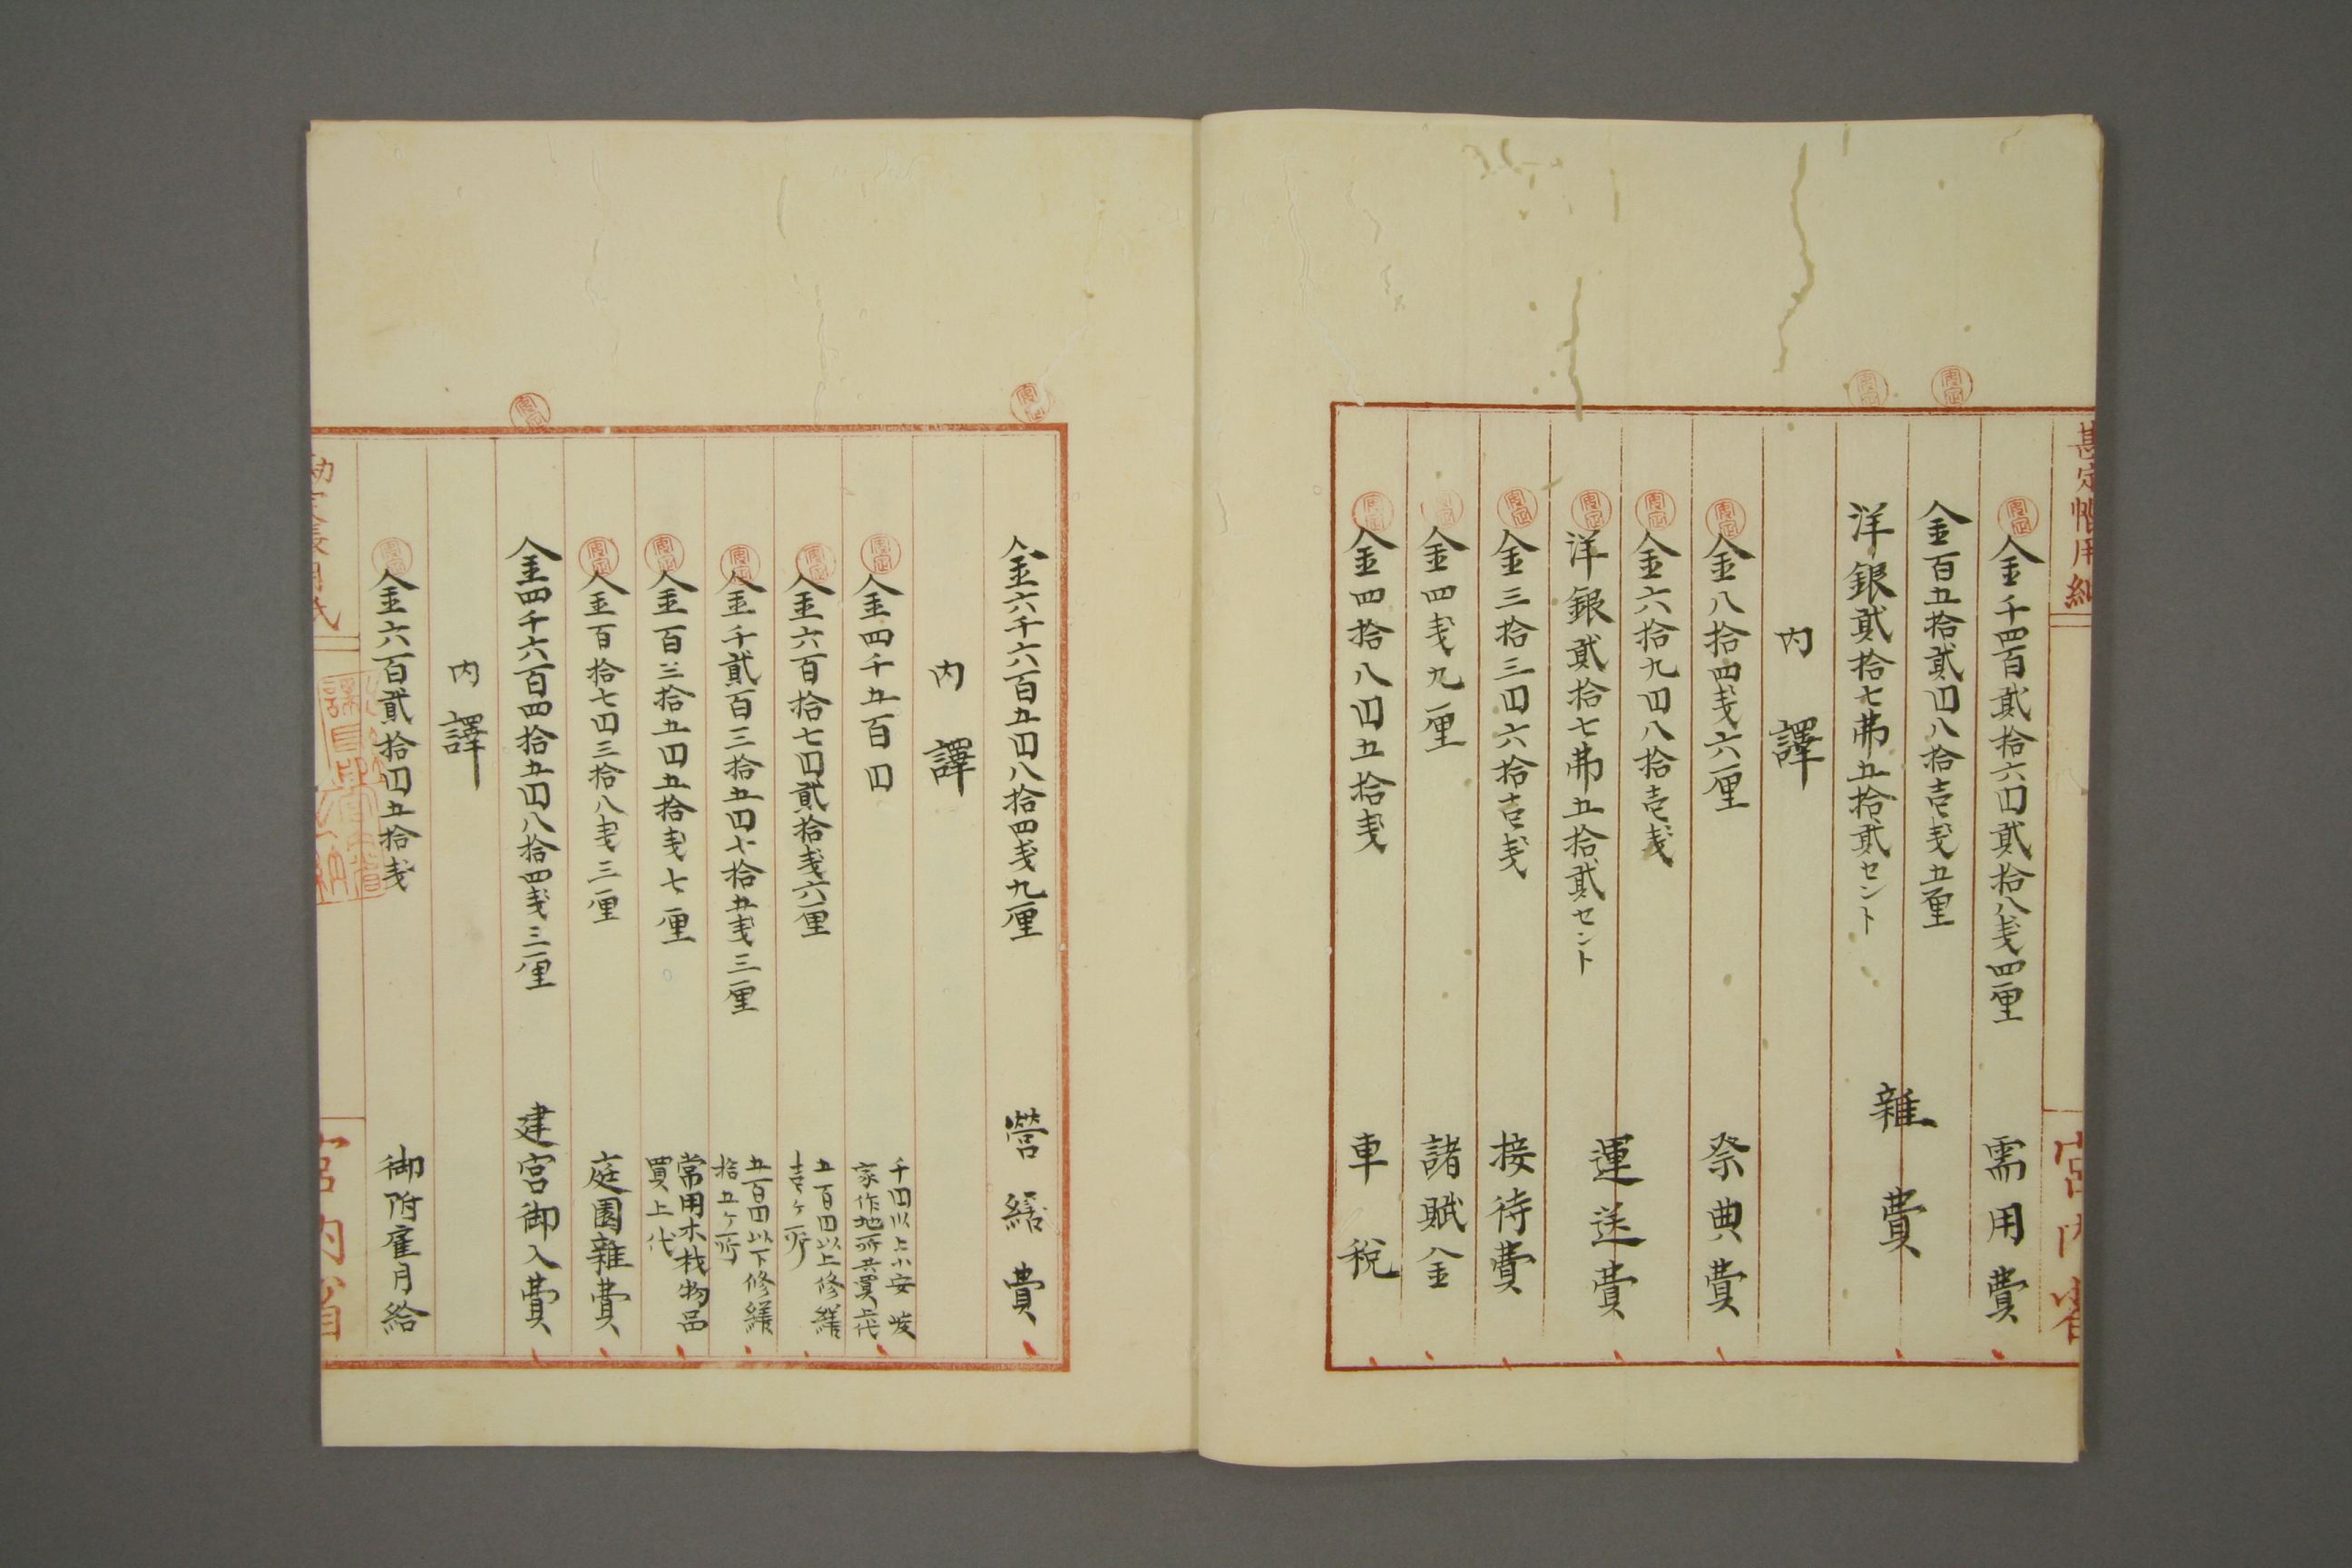 勘定帳用紙
宮内省
金千四百貳拾六円貳拾八戔四厘 需用費
金百五拾貳円八拾壱戔五厘
洋銀貳拾七弗五拾貳セント
雜費
内譯
金八拾四戔六厘 祭典費
金六拾九円八拾壱戔
洋銀貳拾七弗五拾貳セント
運送費
金三拾三円六拾壱戔 接待費
金四戔九厘 諸賦金
金四拾八円五拾戔 車税
金六千六百五円八拾四戔九厘 營繕費
内譯
金四千五百円
千円以上小安峻
家作地所共買上代
金六百拾七円貳拾戔六厘
五百円以上修繕
壱ケ所
金千貳百三拾五円七拾五戔三厘
五百円以下修繕
拾五ケ所
金百三拾五円五拾戔七厘
常用木材物品
買上代
金百拾七円三拾八戔三厘 庭園雜費
金四千六百四拾五円八拾四戔三厘 建宮御入費
内譯
金六百貳拾円五拾戔 御附雇月給
勘定帳用紙
宮内省